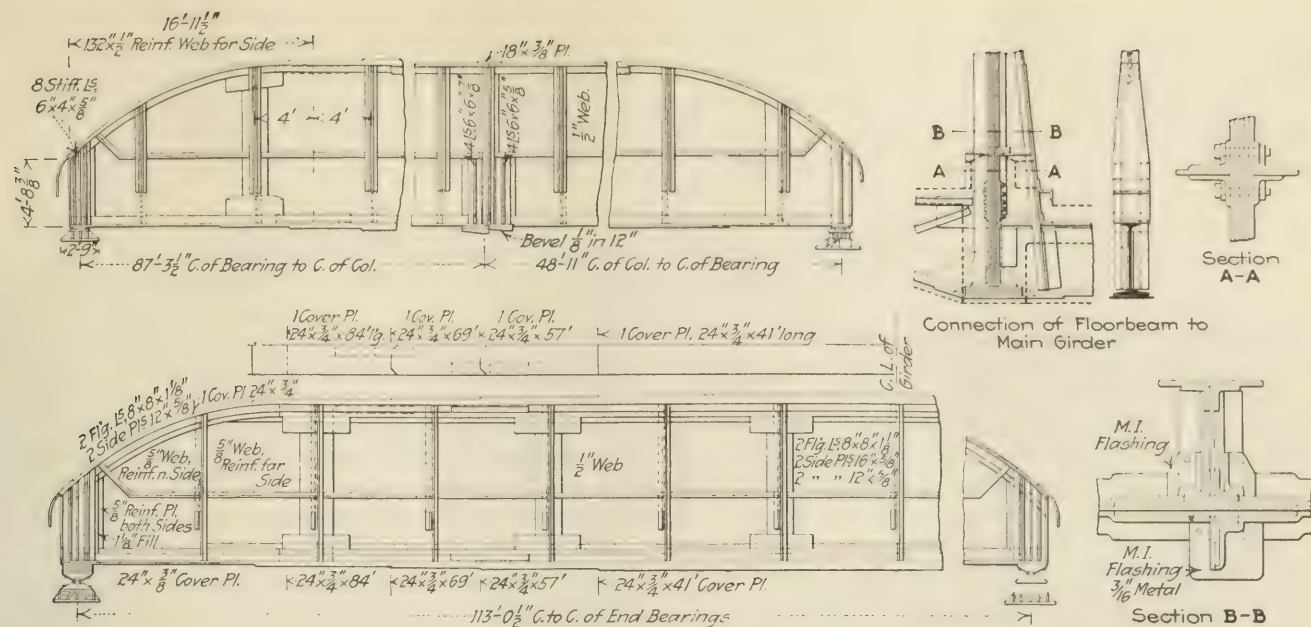 16'-11½"
132"×½" Reinf. Web for Side
8 Stiff. Ls,
6"×4"×⅝"
4'-8⅜"
2'-9"
4' 4'
18"×⅜" Pl.
4 Ls 6"×6"×⅞"
4 Ls 6"×6"×⅝"
½" Web.
Bevel ⅛" in 12"
87'-3½" C. of Bearing to C. of Col.
48'-11" C. of Col. to C. of Bearing
B B
A A
Section
A-A
Connection of Floorbeam to
Main Girder
1 Cover Pl.
24"×¾"×84' lg.
1 Cov. Pl.
24"×¾"×69'
1 Cov. Pl.
24"×¾"×57'
1 Cover Pl. 24"×¾"×41' long
C.L. of
Girder
2 Flg. Ls, 8"×8"×1⅛"
2 Side Pls 12"×⅝"
1 Cov. Pl. 24"×¾"
⅝" Web,
Reinf. n. Side
⅝" Web.
Reinf. far
Side
½" Web
2 Flg. Ls. 8"×8"×1⅛"
2 Side Pls 16"×⅝"
2 " " 12"×⅝"
⅝" Reinf. Pl.
both Sides
1⅛" Fill
24"×⅜" Cover Pl.
24"×¾"×84'
24"×¾"×69'
24"×¾"×57'
24"×¾"×41' Cover Pl.
113'-0½" C. to C. of End Bearings
M.I.
Flashing
M.I.
Flashing
3/16" Metal
Section B-B